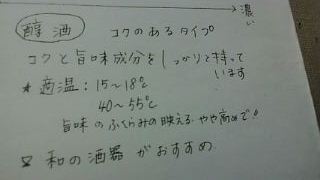 濃い
醇酒 コクのあるタイプ
コクと旨味成分をしっかりと持って
います
★適温:15~18℃
40~55℃
旨味のふくらみの映える やや高めで!
和の酒器がおすすめ